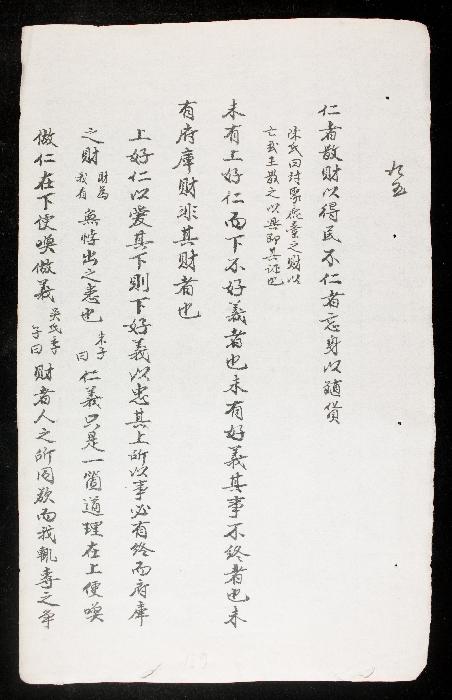 仁者散財以得民不仁者忘身以殖貨
陳氏曰紂聚鹿臺之財以
亡武王散之以興即其證也
未有上好仁而下不好義者也未有好義其事不終者也未
有府庫財非其財者也
上好仁以愛其下則下好義以忠其上所以事必有終而府庫
之財財為我有無悖出之患也朱子曰仁義只是一箇道理在上便喚
做仁在下便喚做義吳氏季子曰財者人之所同欲而我輒專之爭